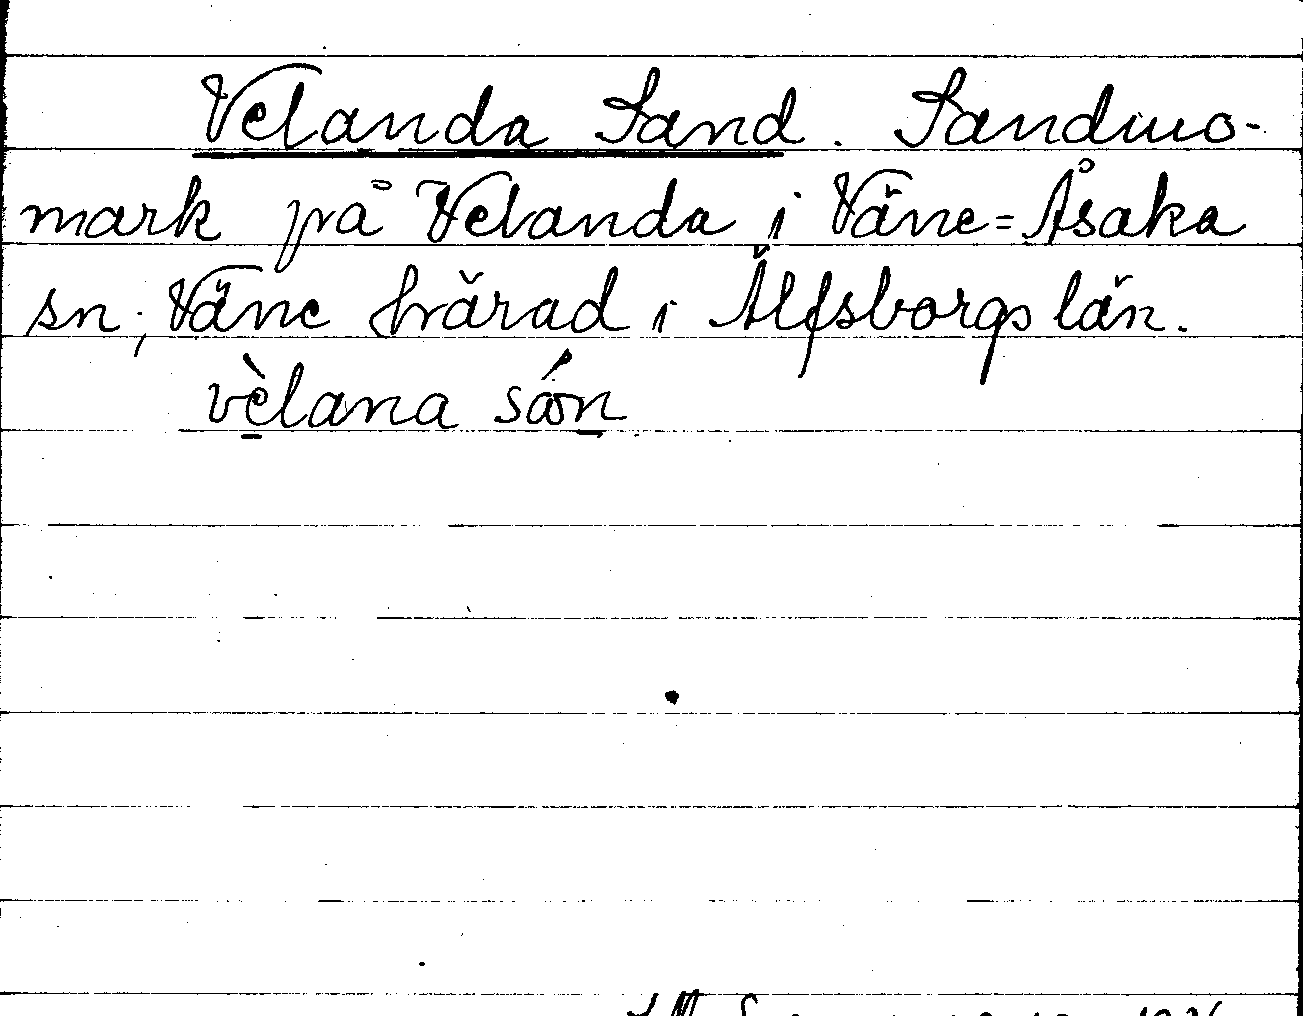 Velanda Sand. Sandmo-
mark på Velanda i Väne=Åsaka
sn; Väne härad i Älfsborgs län.
vèlana sán